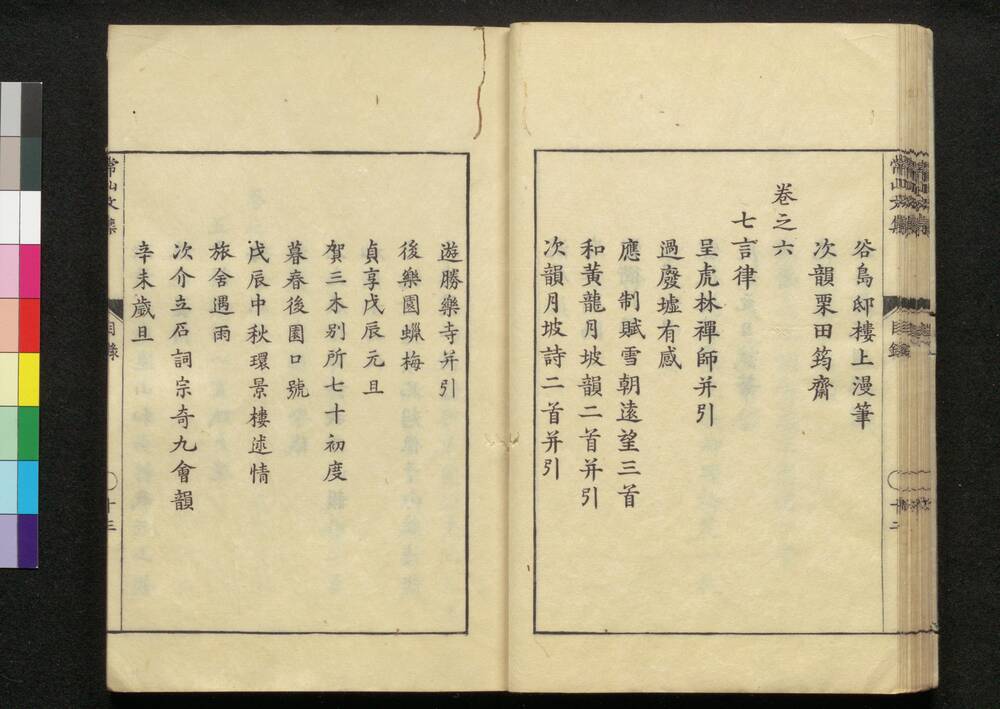 谷島邸樓上漫筆
次韻栗田筠齋
卷之六
七言律
呈虎林禪師并引
過廢墟有感
應制賦雪朝遠望三首
和黃龍月坡韻二首并引
次韻月坡詩二首并引
遊勝樂寺并引
後樂園蠟梅
貞享戊辰元旦
賀三木別所七十初度
暮春後園口號
戊辰中秋環景樓述情
旅舍遇雨
次介立石詞宗奇九會韻
辛未歲旦
常山文集
目錄
十三